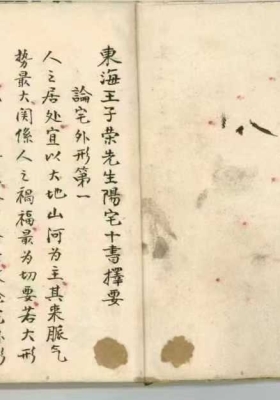 東海王子荣先生陽宅十書擇要
論宅外形第一
人之居处宜以大地山河为主其来脈气
势最大関係人之禍福最为切要若大形